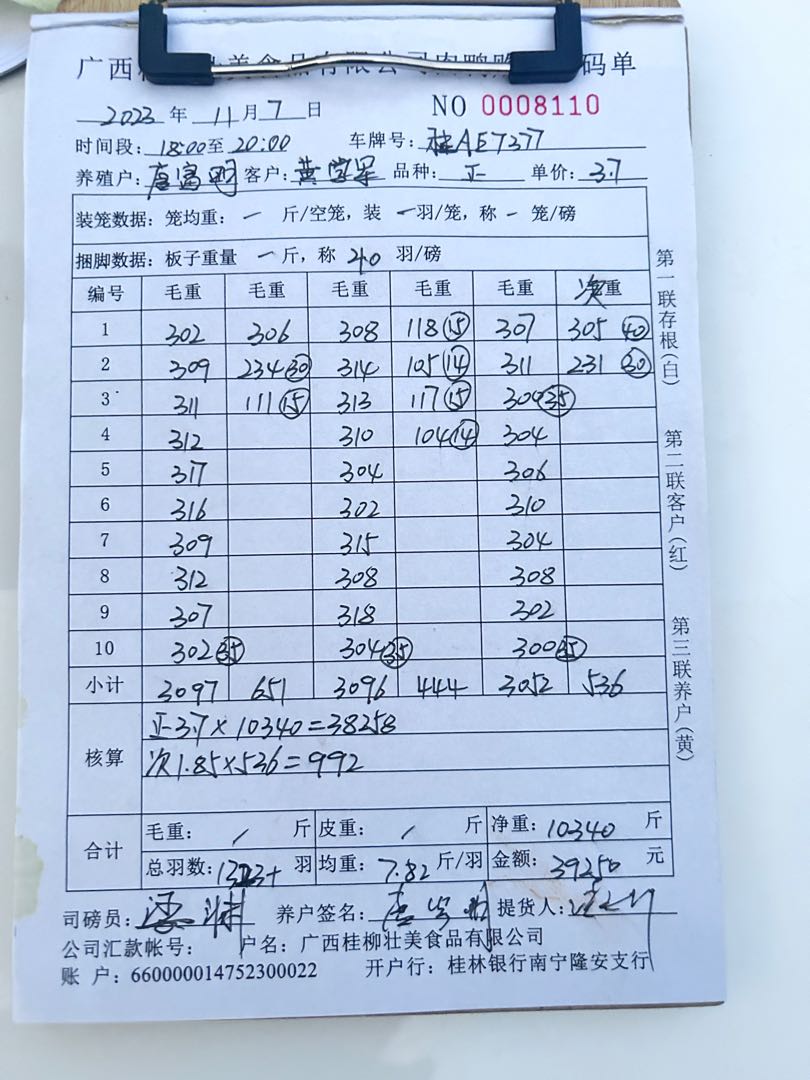 广西 壮美食品有限公司肉鸭 码单
2023 年 11 月 7 日 NO 0008110
时间段: 18:00 至 20:00 车牌号: 桂AE7377
养殖户: 唐富明 客户: 黄 品种: 正 单价: 3.7
装笼数据: 笼均重: 一 斤/空笼, 装 一 羽/笼, 称 一 笼/磅
捆脚数据: 板子重量 一 斤, 称 40 羽/磅
编号 毛重 毛重 毛重 毛重 毛重 次重
1 302 306 308 118⑮ 307 305㊵
2 309 234㉚ 314 105⑭ 311 231㉚
3 311 111⑮ 313 117⑮ 304㉟
4 312 310 104⑭ 304
5 317 304 306
6 316 302 310
7 309 315 304
8 312 308 308
9 307 318 302
10 302㉟ 304㉟ 300㉟
小计 3097 651 3096 444 3052 536
核算 正3.7×10340=38258
次1.85×536=992
合计 毛重: / 斤 皮重: / 斤 净重: 10340 斤
总羽数: 羽 均重: 7.82 斤/羽 金额: 39250 元
司磅员: 养户签名: 唐 提货人:
公司汇款帐号: 户名: 广西桂柳壮美食品有限公司
账 户: 660000014752300022 开户行: 桂林银行南宁隆安支行
第一联存根(白)
第二联客户(红)
第三联养户(黄)